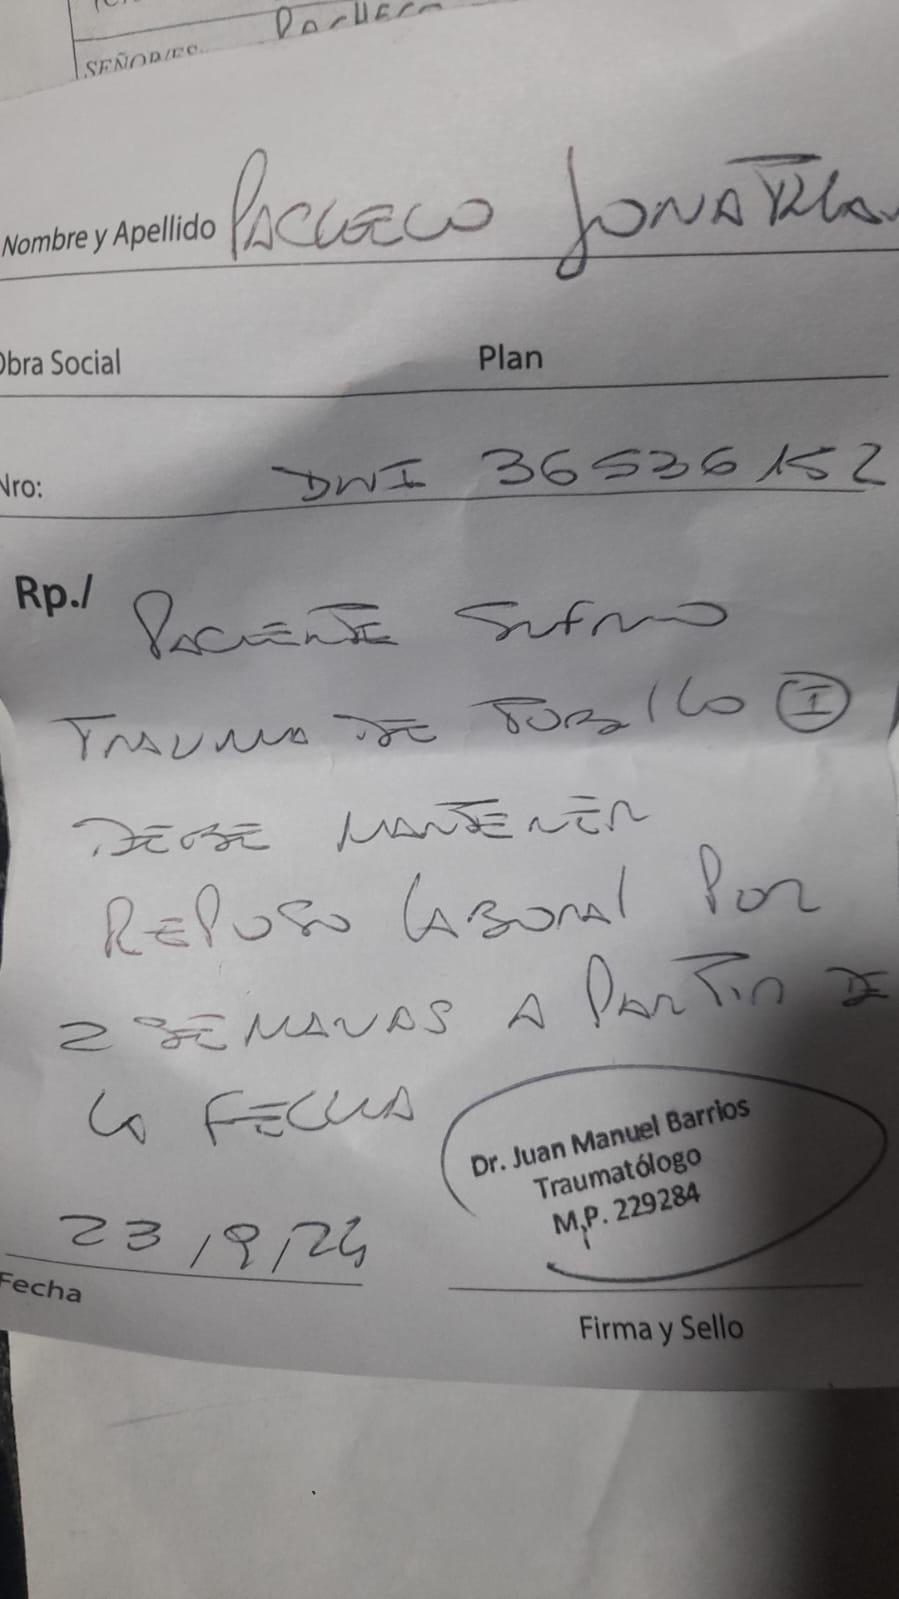 SEÑOR/ES
Nombre y Apellido PACHECO JONATHAN
Obra Social Plan
Nro: DNI 36536152
Rp./ PACIENTE SUFRIO
TRAUMA DE TOBILLO I
DEBE MANTENER
REPOSO LABORAL POR
2 SEMANAS A PARTIR DE
LA FECHA
Dr. Juan Manuel Barrios
Traumatólogo
M.P. 229284
23/9/24
Fecha
Firma y Sello